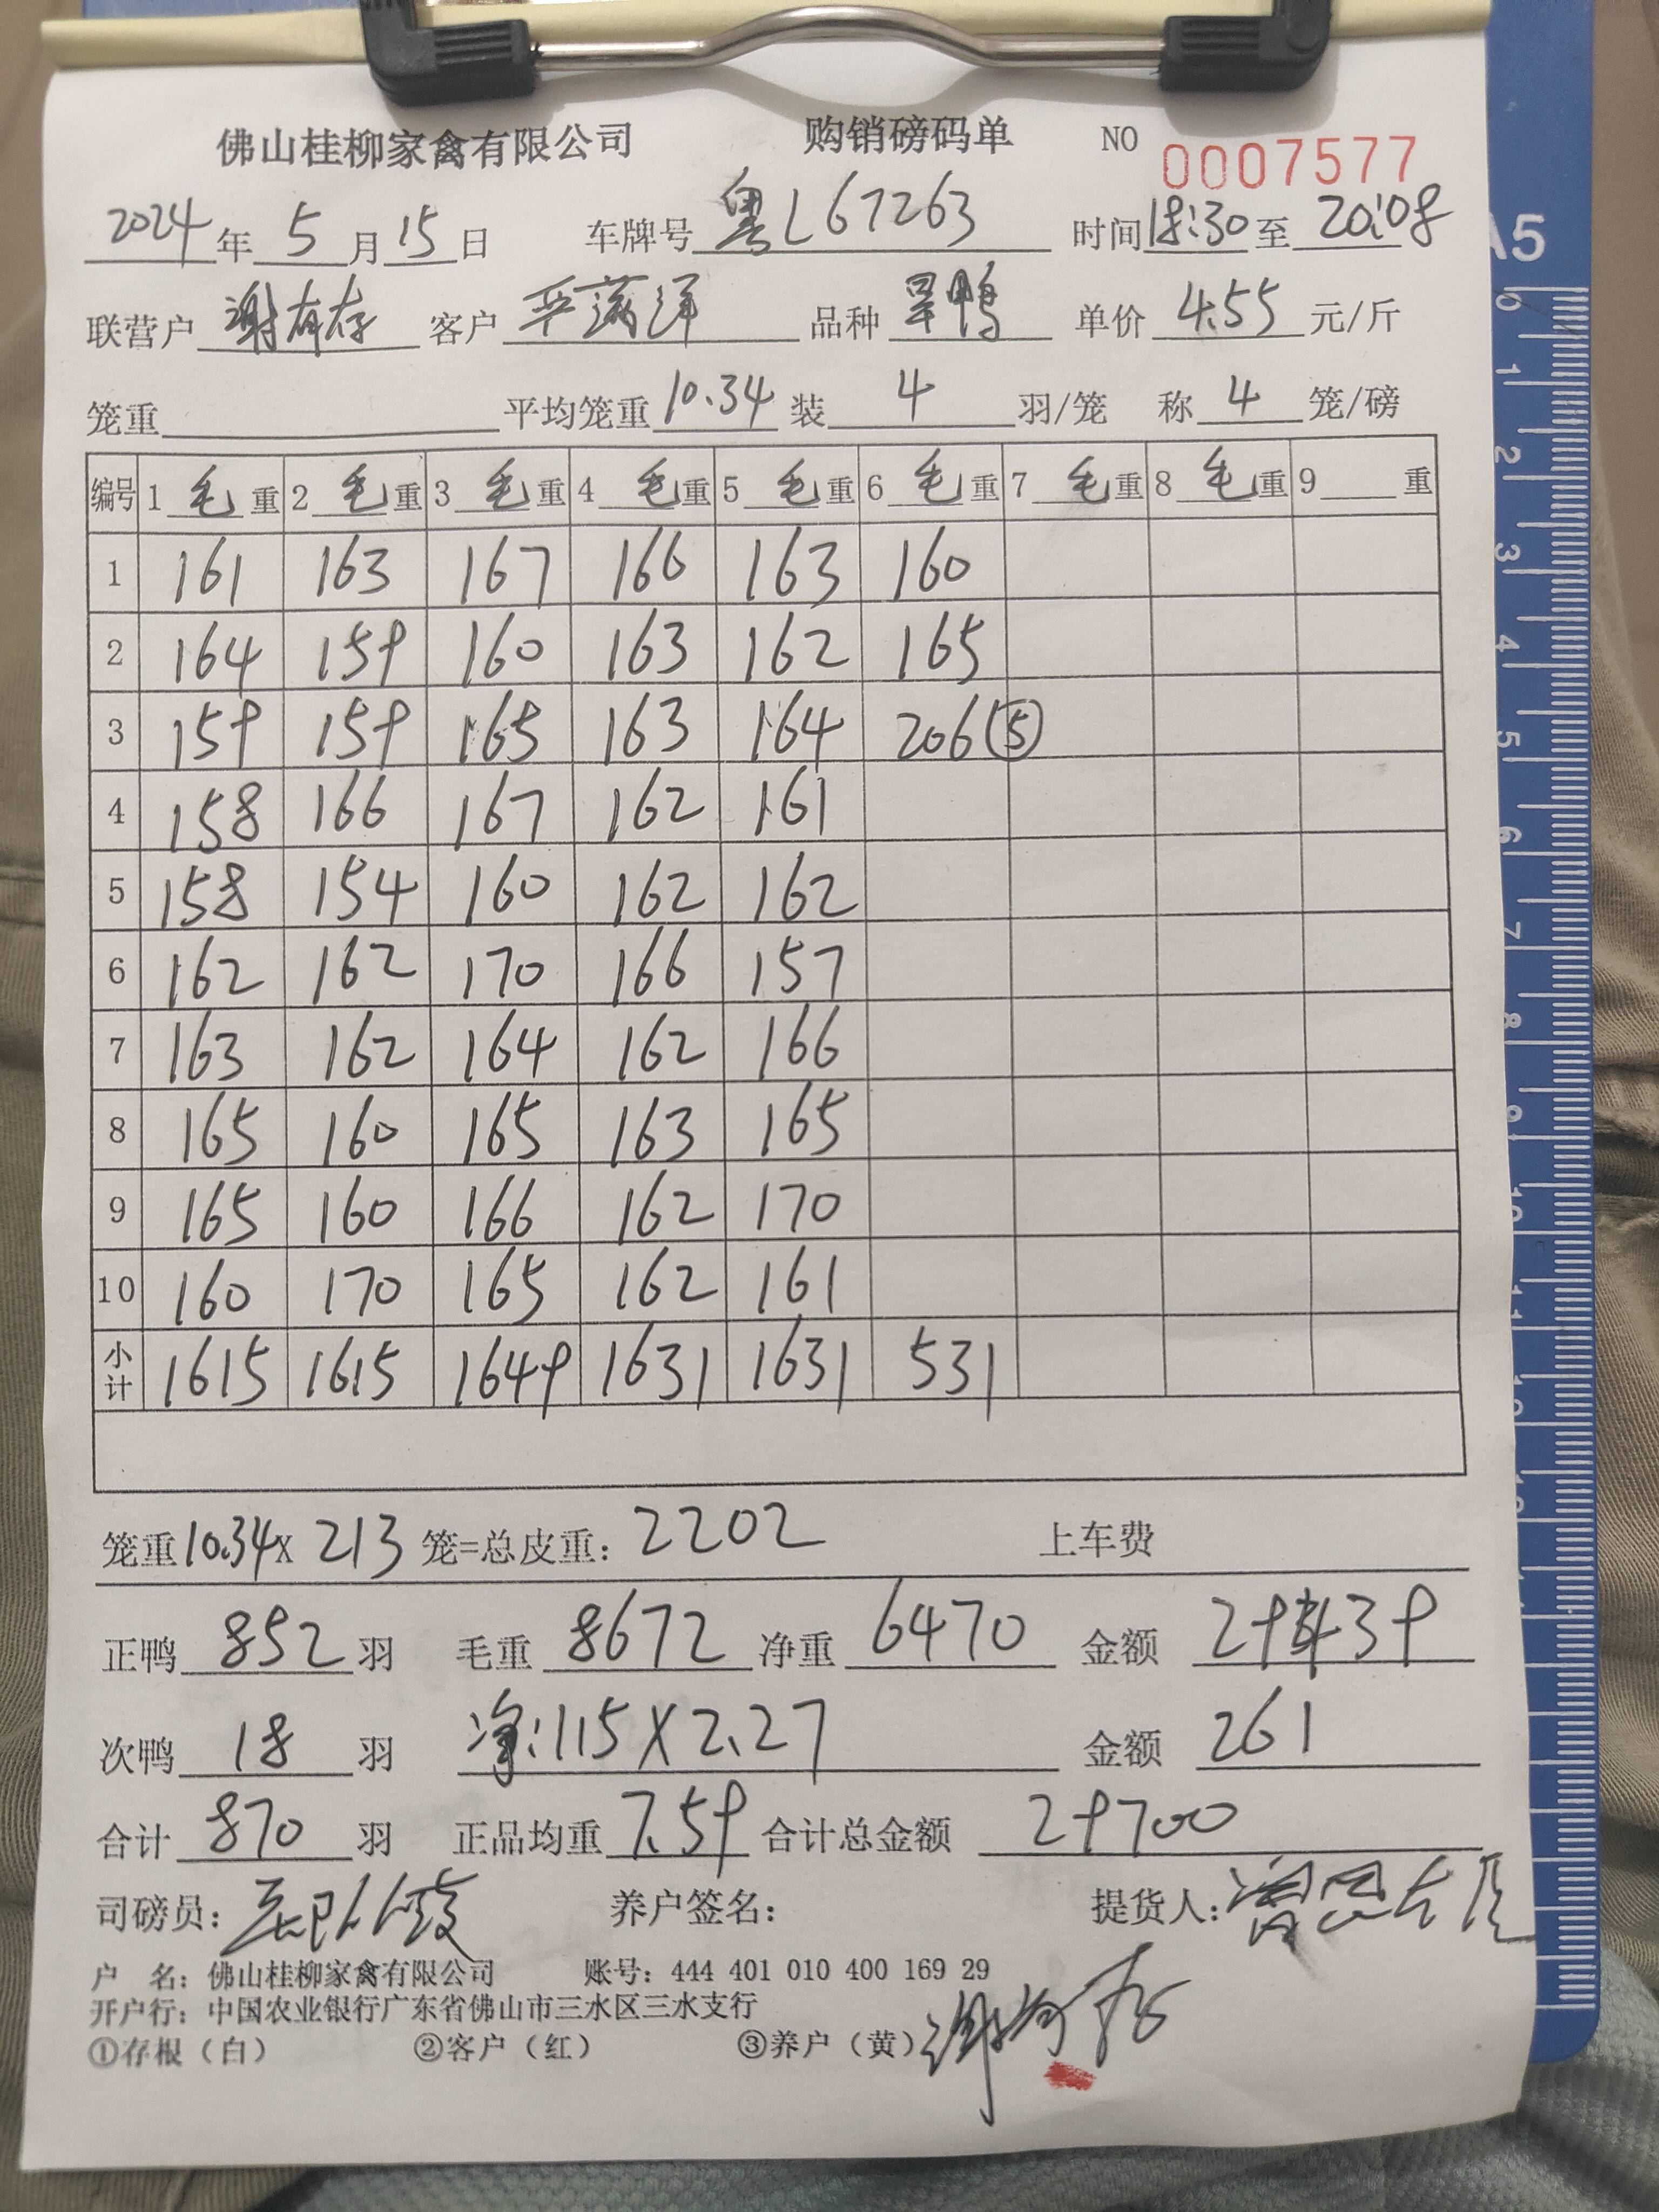 佛山桂柳家禽有限公司 购销磅码单 NO 0007577
2024年5月15日 车牌号 粤L67263 时间18:30至20:08
联营户 谢有存 客户 品种 旱鸭 单价 4.55 元/斤
笼重 平均笼重 10.34 装 4 羽/笼 称 4 笼/磅
编号 1 毛 重 2 毛 重 3 毛 重 4 毛 重 5 毛 重 6 毛 重 7 毛 重 8 毛 重 9 重
1 161 163 167 166 163 160
2 164 159 160 163 162 165
3 159 159 165 163 164 206 ⑤
4 158 166 167 162 161
5 158 154 160 162 162
6 162 162 170 166 157
7 163 162 164 162 166
8 165 160 165 163 165
9 165 160 166 162 170
10 160 170 165 162 161
小计 1615 1615 1649 1631 1631 531
笼重10.34X 213 笼=总皮重: 2202 上车费
正鸭 852 羽 毛重 8672 净重 6470 金额
次鸭 18 羽 净:115X2.27 金额 261
合计 870 羽 正品均重 7.59 合计总金额 29700
司磅员: 养户签名: 提货人:
户 名: 佛山桂柳家禽有限公司 账号: 444 401 010 400 169 29
开户行: 中国农业银行广东省佛山市三水区三水支行
①存根（白） ②客户（红） ③养户（黄） 谢有存
A5
0 1 2 3 4 5 6 7 8 9 10 11 12 13